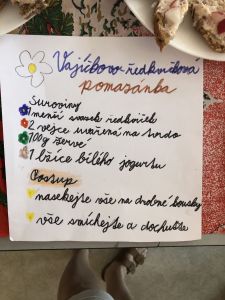 Vajíčkovo ředkvičková
pomazánka
Suroviny
1 menší svazek ředkviček
2 vejce uvařená na tvrdo
100g žervé
1 lžíce bílého jogurtu
Postup
nasekejte vše na drobné kousky
vše smíchejte a dochuťte